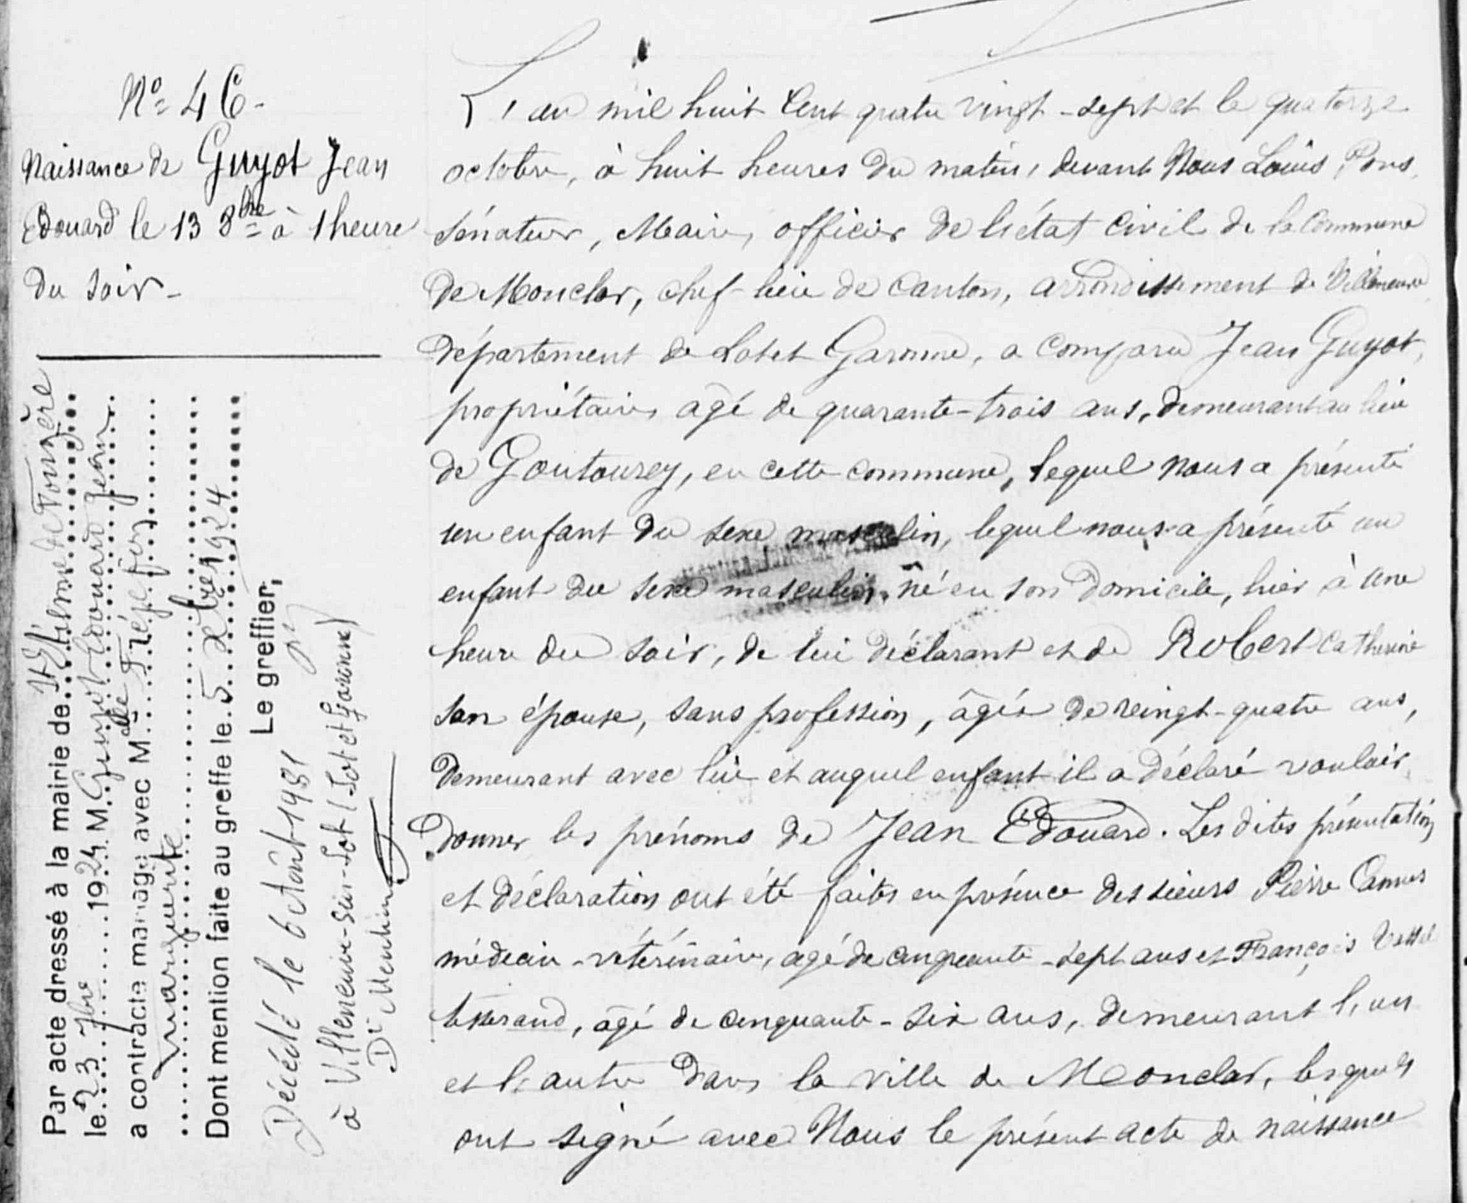 N° 46-
Naissance de Guyot Jean
Edouard le 13 8bre à 1 heure
du soir-
Par acte dressé à la mairie de St Etienne de Fougère
le 23 7bre 1924 M. Guyot Edouard Jean
a contracté mariage avec Melle
Marguerite
Dont mention faite au greffe le 5 Xbre 1924
Le greffier,
Décédé le 6 Août 1981
à Villeneuve-sur-Lot (Lot et Garonne)
Dt Mention
L'an mil huit cent quatre vingt-sept et le quatorze
octobre, à huit heures du matin, devant Nous Louis Pons,
sénateur, Maire, officier de l'état civil de la Commune
de Monclar, chef-lieu de canton, arrondissement de Villeneuve,
département de Lot et Garonne, a comparu Jean Guyot,
propriétaire, âgé de quarante-trois ans, demeurant au lieu
de Goutourey, en cette commune, lequel nous a présenté
un enfant du sexe masculin, lequel nous a présenté un
enfant du sexe masculin, né en son domicile, hier à une
heure du soir, de lui déclarant et de Robert Catherine
son épouse, sans profession, âgée de vingt-quatre ans,
demeurant avec lui et auquel enfant il a déclaré vouloir
donner les prénoms de Jean Edouard. Les dites présentation
et déclaration ont été faites en présence des sieurs Pierre Cames
médecin-vétérinaire, âgé de cinquante-sept ans et François
tisserand, âgé de cinquante-six ans, demeurant l'un
et l'autre dans la ville de Monclar, lesquels
ont signé avec Nous le présent acte de naissance